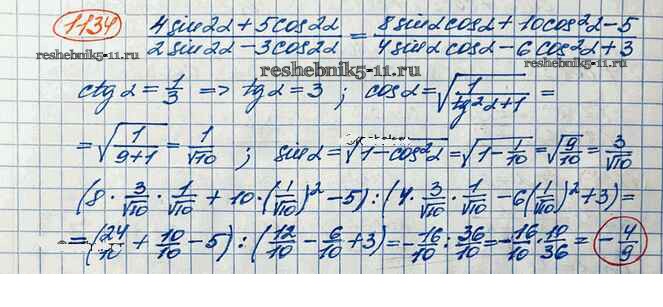 1134 (4 sin2α + 5cos2α)/(2 sin2α - 3cos2α) = (8 sinα cosα + 10cos²α - 5)/(4 sinα cosα - 6cos²α + 3)
reshebnik5-11.ru
reshebnik5-11.ru
ctgα = 1/3 => tgα = 3 ; cosα = √(1/(tg²α+1)) =
= √(1/(9+1)) = 1/√10 ; sinα = √(1-cos²α) = √(1-1/10) = √(9/10) = 3/√10
(8 · 3/√10 · 1/√10 + 10 · (1/√10)² - 5) : (4 · 3/√10 · 1/√10 - 6(1/√10)² + 3) =
= (24/10 + 10/10 - 5) : (12/10 - 6/10 + 3) = -16/10 : 36/10 = -16/10 · 10/36 = -4/9